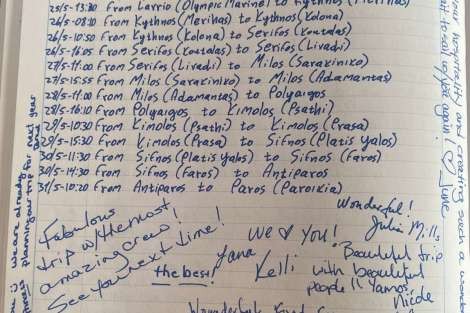 25/5-13:30 From Lavrio (Olympic Marine) to Kythnos (Merihas)
26/5-08:10 From Kythnos (Merihas) to Kythnos (Kolona)
26/5-10:50 From Kythnos (Kolona) to Serifos (Koutalas)
26/5-16:05 From Serifos (Koutalas) to Serifos (Livadi)
27/5-11:00 From Serifos (Livadi) to Milos (Sarakiniko)
27/5-15:55 From Milos (Sarakiniko) to Milos (Adamantas)
28/5-11:00 From Milos (Adamantas) to Polyaigos
28/5-16:10 From Polyaigos to Kimolos (Psathi)
29/5-10:30 From Kimolos (Psathi) to Kimolos (Prasa)
29/5-15:30 From Kimolos (Prasa) to Sifnos (Platis Yalos)
30/5-11:30 From Sifnos (Platis Yalos) to Sifnos (Faros)
30/5-14:30 From Sifnos (Faros) to Antiparos
31/5-10:20 From Antiparos to Paros (Paroikia)
Fabulous
trip w/the most
amazing crew!
See you next time!
the best!
Yana
We ♡ You!
Kelli
Wonderful!
Julia M
Beautiful trip
with beautiful
people!! Yamas
Nicole
Wonderful
we are already
planning our trip for next year
your hospitality and creating such a wonder
to sail again! ♡ June